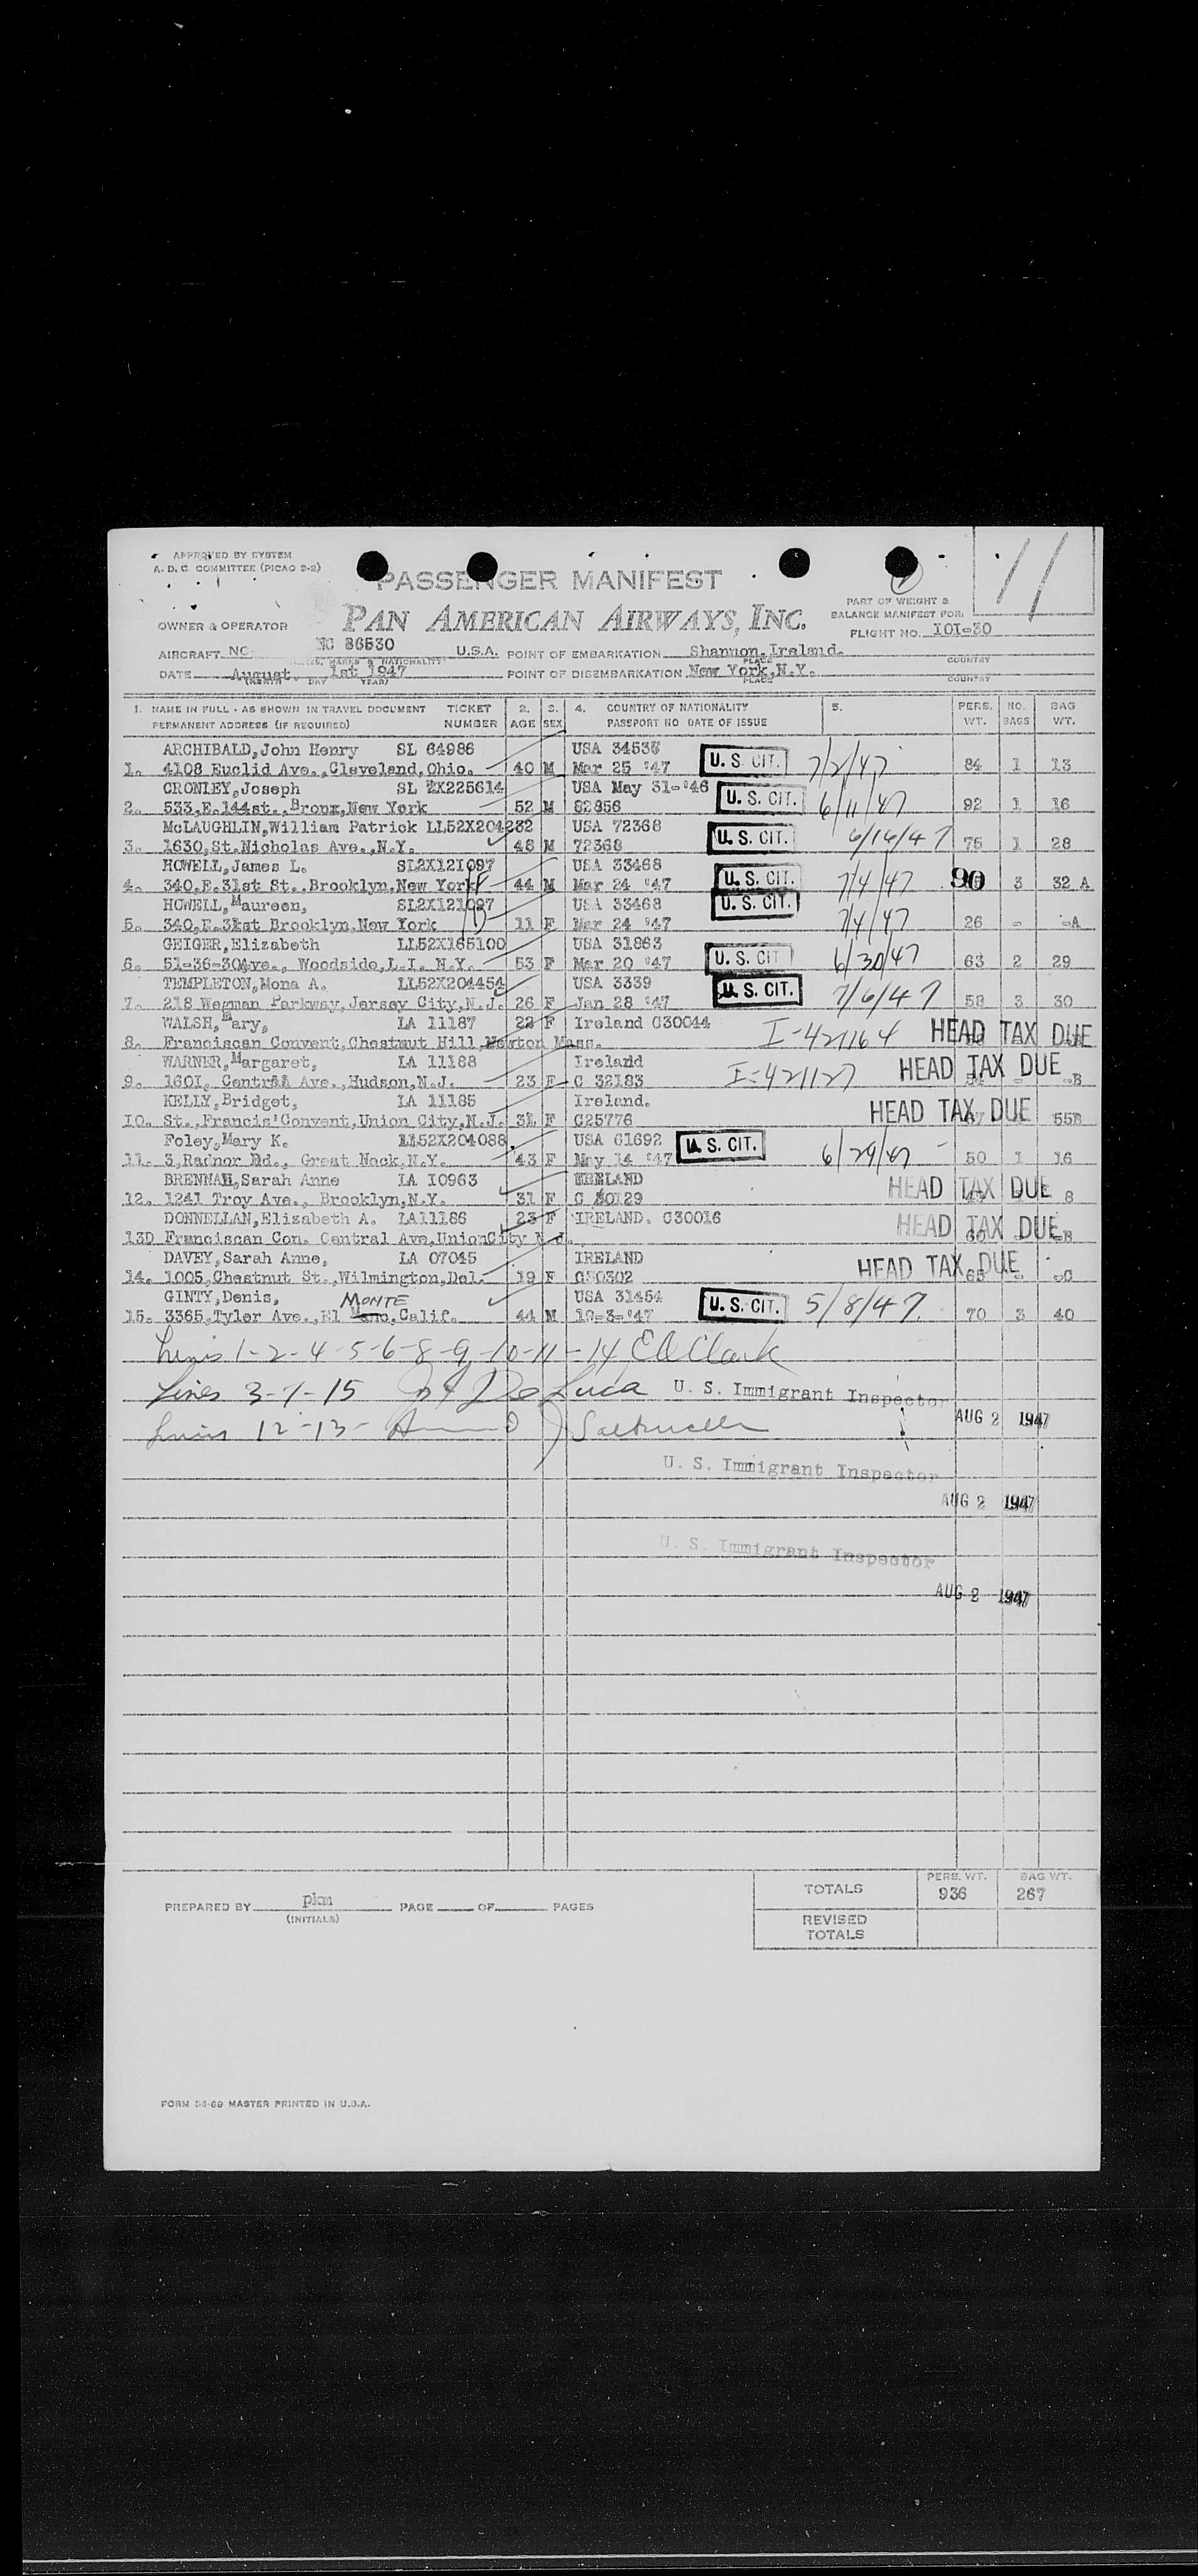 APPROVED BY SYSTEM
A. D. C. COMMITTEE (PICAO 2-2)
11
PASSENGER MANIFEST
PAN AMERICAN AIRWAYS, INC.
PART OF WEIGHT &
BALANCE MANIFEST FOR:
OWNER & OPERATOR
FLIGHT NO. 101-30
AIRCRAFT NC NC 86530 U.S.A. POINT OF EMBARKATION Shannon, Ireland.
PLACE COUNTRY
DATE August 1st 1947 POINT OF DISEMBARKATION New York, N.Y.
DAY YEAR) PLACE COUNTRY
1. NAME IN FULL - AS SHOWN IN TRAVEL DOCUMENT TICKET 2. 3. 4. COUNTRY OF NATIONALITY 5. PERS. NO. BAG
PERMANENT ADDRESS (IF REQUIRED) NUMBER AGE SEX PASSPORT NO DATE OF ISSUE WT. BAGS WT.
ARCHIBALD, John Henry SL 64986 USA
1. 4108 Euclid Ave., Cleveland, Ohio. 40 M Mar 25 '47 U. S. CIT. 7/2/47 84 1 13
CRONLEY, Joseph SL 2X225614 USA May 31-'46
2. 533, E. 144st., Bronx, New York 52 M 82856 U. S. CIT. 6/11/47 92 1 16
McLAUGHLIN, William Patrick LL52X204232 USA 72368
3. 1630, St. Nicholas Ave., N.Y. 48 M 72368 U. S. CIT. 6/16/47 75 1 28
HOWELL, James L. SL2X121097 USA 33468
4. 340, E. 31st St., Brooklyn, New York 44 M Mar 24 '47 U. S. CIT. 7/4/47 90 3 32 A
HOWELL, Maureen, SL2X121097 USA 33468
5. 340, E. 31st Brooklyn, New York 11 F Mar 24 '47 U. S. CIT. 7/4/47 26 - -A
GEIGER, Elizabeth LL52X165100 USA 31863
6. 51-36-30Ave., Woodside, L.I. N.Y. 53 F Mar 20 '47 U. S. CIT 6/30/47 63 2 29
TEMPLETON, Mona A. LL52X204454 USA 3339
7. 218 Wegman Parkway, Jersey City, N.J. 26 F Jan 28 '47 U. S. CIT. 7/6/47 58 3 30
WALSH, Mary, LA 11187 22 F Ireland C30044 I-421164 HEAD TAX DUE
8. Franciscan Convent, Chestnut Hill, Newton Mass.
WARNER, Margaret, LA 11188 Ireland
9. 1601, Central Ave., Hudson, N.J. 23 F C 32183 I-421127 HEAD TAX DUE - -B
KELLY, Bridget, LA 11185 Ireland.
10. St., Francis' Convent, Union City, N.J. 31 F C25776 HEAD TAX DUE 55B
Foley, Mary K. LL52X204088 USA 61692
11. 3, Radnor Rd., Great Neck, N.Y. 43 F May 14 '47 U. S. CIT. 6/29/47 50 1 16
BRENNAN, Sarah Anne LA 10963 IRELAND
12. 1241 Troy Ave., Brooklyn, N.Y. 31 F C 30129 HEAD TAX DUE 8
DONNELLAN, Elizabeth A. LA11186 23 F IRELAND. C30016
13D Franciscan Con. Central Ave, UnionCity N.J. HEAD TAX DUE
DAVEY, Sarah Anne, LA 07045 IRELAND
14. 1005, Chestnut St., Wilmington, Del. 19 F C30302 HEAD TAX DUE 65 - -C
GINTY, Denis, MONTE USA 31454
15. 3365, Tyler Ave., El Calif. 44 M 12-3-'47 U. S. CIT. 5/8/47. 70 3 40
Lines 1-2-4-5-6-8-9-10-11-14 Clark
Lines 3-7-15 De Luca U. S. Immigrant Inspector
AUG 2 1947
Lines 12-13-
U. S. Immigrant Inspector
AUG 2 1947
U. S. Immigrant Inspector
AUG 2 1947
PERS. WT. BAG WT.
TOTALS 936 267
PREPARED BY pkm PAGE OF PAGES
(INITIALS)
REVISED
TOTALS
FORM 34-69 MASTER PRINTED IN U.S.A.